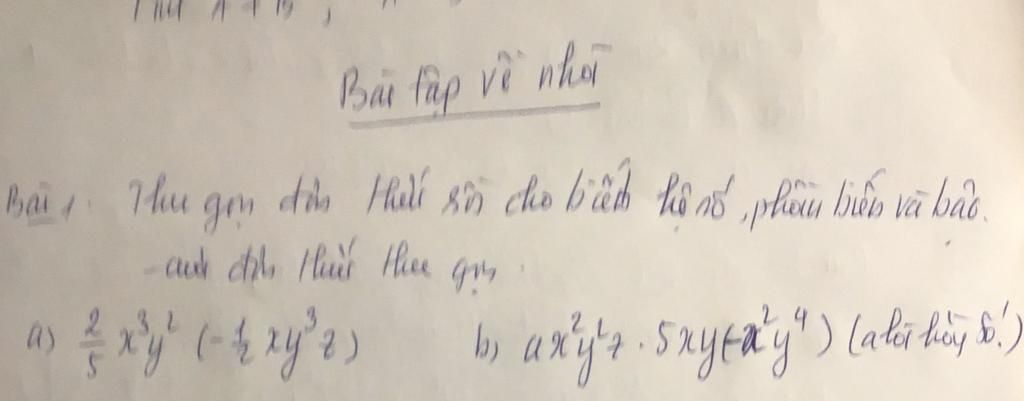 Bài tập về nhà
Bài 1. Thu gọn đơn thức rồi cho biết hệ số, phần biến và bậc
của đơn thức thu gọn.
a) \frac{2}{5} x³y² (-\frac{1}{2} xy³z) b) ax²y²z . 5xy(-x²y⁴) (a là hằng số!)